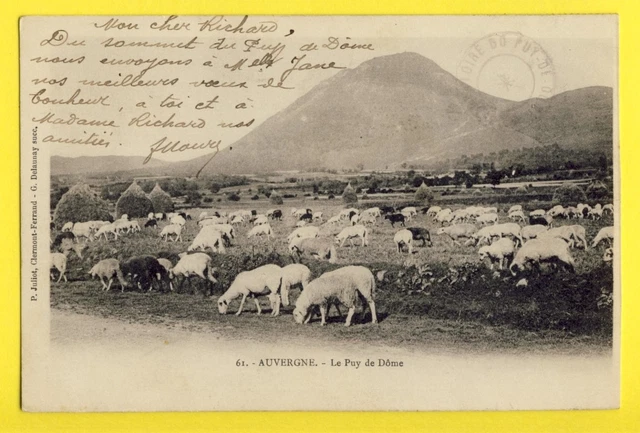 Mon cher Richard,
Du sommet du Puy de Dôme
nous envoyons à Melle Jane
nos meilleurs vœux de
bonheur, a toi et à
Madame Richard nos
amitiés.
P. Juliot, Clermont-Ferrand - G. Delaunay succ.
61. - AUVERGNE. - Le Puy de Dôme